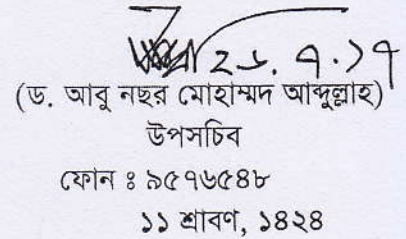 ২৬.৭.১৭
(ড. আবু নছর মোহাম্মদ আব্দুল্লাহ)
উপসচিব
ফোন ঃ ৯৫৭৬৫৪৮
১১ শ্রাবণ, ১৪২৪